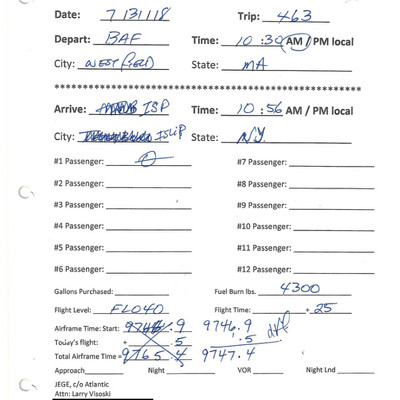 Date: 7/31/18 Trip: 463
Depart: BAF Time: 10:30 AM / PM local
City: WESTFIELD State: MA
****************************************************
Arrive: ISP Time: 10:56 AM / PM local
City: ISLIP State: NY
#1 Passenger: 0 #7 Passenger:
#2 Passenger: #8 Passenger:
#3 Passenger: #9 Passenger:
#4 Passenger: #10 Passenger:
#5 Passenger: #11 Passenger:
#6 Passenger: #12 Passenger:
Gallons Purchased: Fuel Burn lbs. 4300
Flight Level: FL040 Flight Time: + 25
Airframe Time: Start: .9 9746.9
Today's flight: + .5 .5
Total Airframe Time = 9765.4 9747.4
Approach Night VOR Night Lnd
JEGE, c/o Atlantic
Attn: Larry Visoski